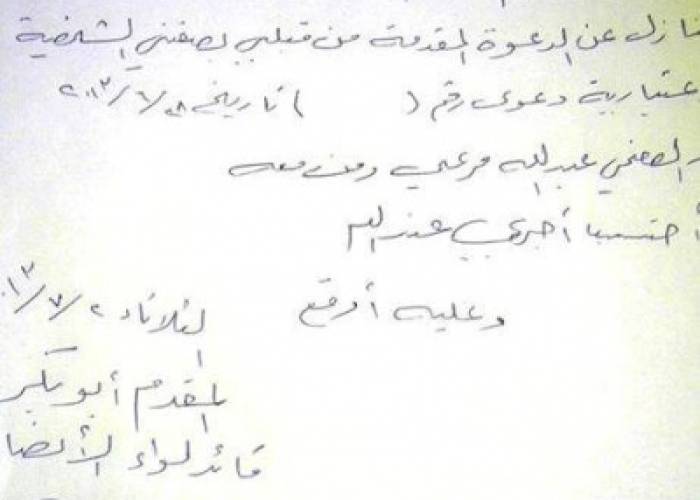 نازل عن الدعوة المقدمة من قبلي بصفتي الشخصية
عتبارية دعوى رقم ( ) تاريخ ٢٠١٣/٧/
الصحفي عبدالله مرعي ومن معه
أحتسبا أجري عند الله
وعليه أوقع
الثلاثاء ٢/٧/٠١٣
المقدم أبو بكر
قائد لواء الأنصا